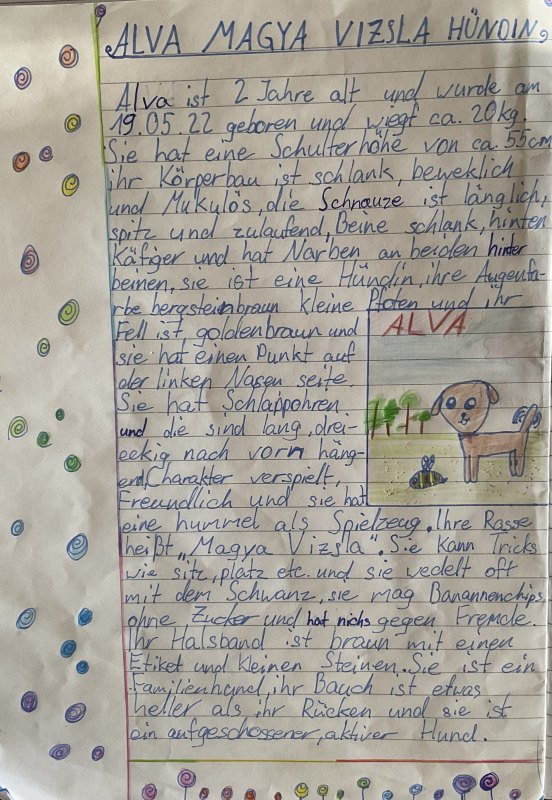 ALVA MAGYA VIZSLA HÜNDIN,
Alva ist 2 Jahre alt und wurde am
19.05.22 geboren und wiegt ca. 20kg.
Sie hat eine Schulterhöhe von ca. 55cm
ihr Körperbau ist schlank, beweklich
und Mukulös, die Schnauze ist länglich,
spitz und zulaufend, Beine schlank, hinten
Käfiger und hat Narben an beiden hinter
beinen, sie ist eine Hündin, ihre Augenfa-
rbe bergsteinbraun kleine Pfoten und ihr
Fell ist goldenbraun und
sie hat einen Punkt auf
der linken Nasen seite.
Sie hat Schlappohren
und die sind lang, drei-
eekig nach vorn häng-
end, Charakter verspielt,
Freundlich und sie hat
ALVA
eine hummel als Spielzeug. Ihre Rasse
heißt „Magya Vizsla". Sie kann Tricks
wie sitz, platz etc. und sie wedelt oft
mit dem Schwanz, sie mag Banannenchips
ohne Zucker und hat nichs gegen Fremde.
Ihr Halsband ist braun mit einen
Etiket und kleinen Steinen. Sie ist ein
Familienhund, ihr Bauch ist etwas
heller als ihr Rücken und sie ist
ein aufgeschossener, aktiver Hund.